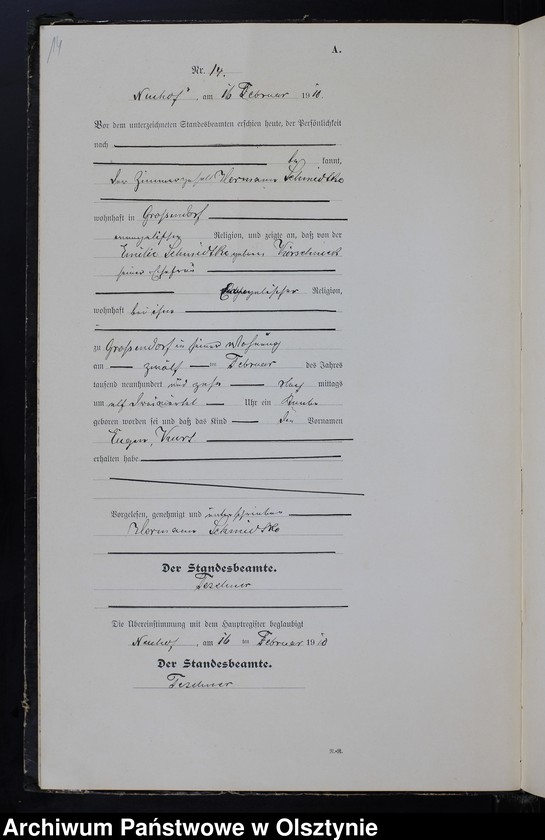 14
A.
Nr. 14.
Neuhof, am 16 Februar 1910.
Vor dem unterzeichneten Standesbeamten erschien heute, der Persönlichkeit
nach
be kannt,
der Zimmergesell Hermann Schmidtke
wohnhaft in Großendorf
evangelischer Religion, und zeigte an, daß von der
Emilie Schmidtke geboren
seiner Ehefrau
Evangelischer Religion,
wohnhaft bei ihm
zu Großendorf in seiner Wohnung
am zwölf ten Februar des Jahres
tausend neunhundert und zehn Nach mittags
um elf dreiviertel Uhr ein Knabe
geboren worden sei und daß das Kind den Vornamen
Eugen, Kurt
erhalten habe
Vorgelesen, genehmigt und unterschrieben
Hermann Schmidtke
Der Standesbeamte.
Teschner
Die Übereinstimmung mit dem Hauptregister beglaubigt
Neuhof, am 16 ten Februar 1910
Der Standesbeamte.
Teschner
Archiwum Państwowe w Olsztynie